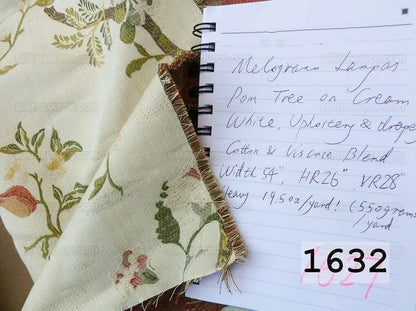 Melograno Lampas
Pom Tree on Cream
White, Uphlotery & drapes
Cotton & Viscose Blend
Width 54", HR26" VR28"
Heavy 19.5oz/yard! (550grams
/yard
1632